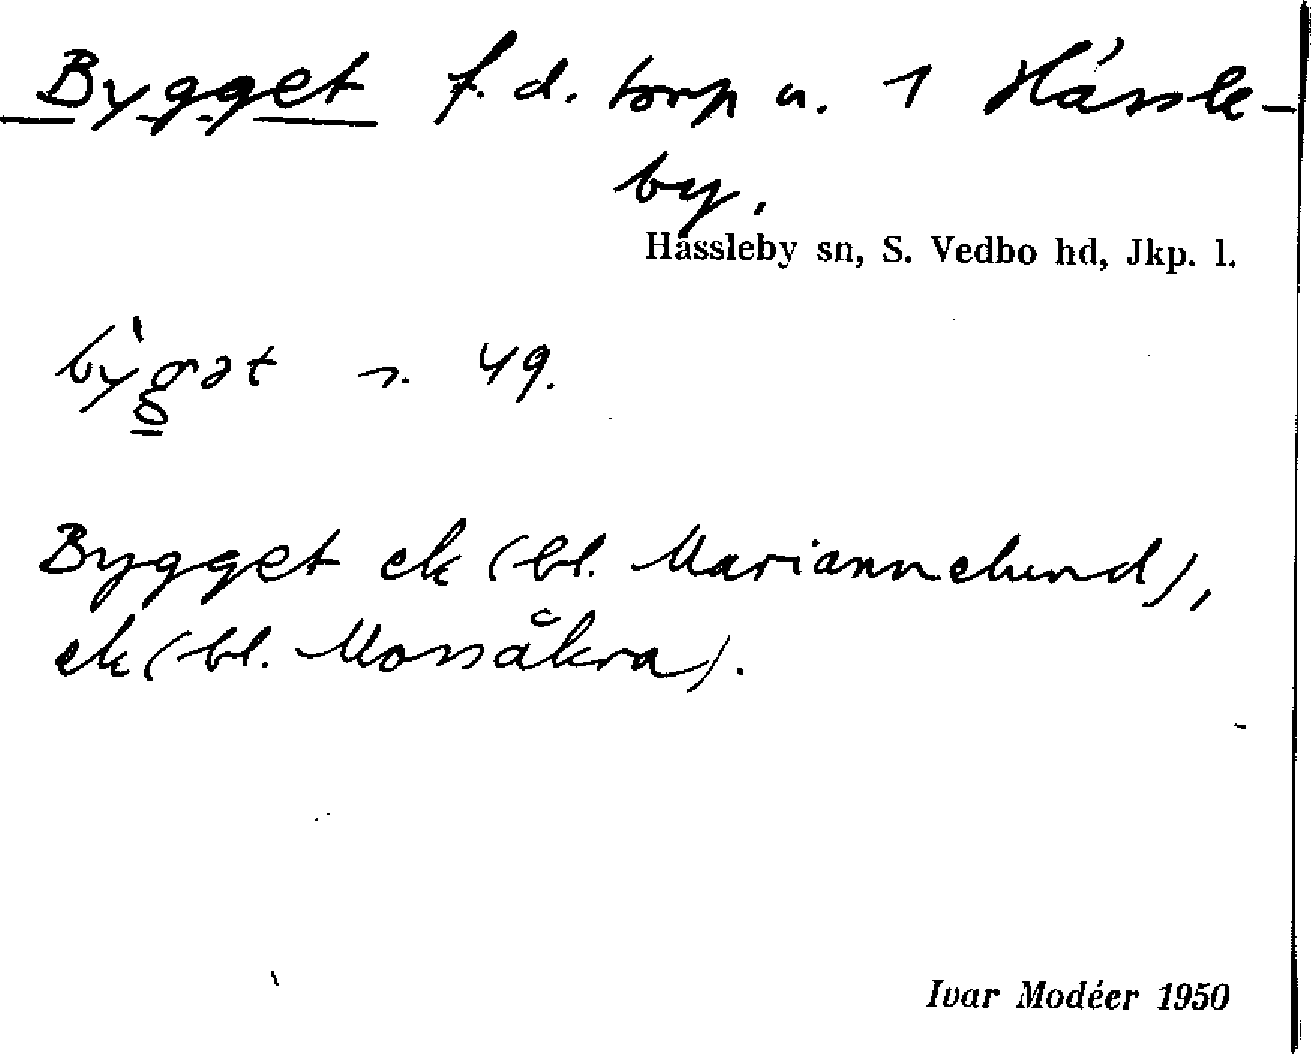 Bygget f. d. torp u. 1 Hässle-
by.
Hässleby sn, S. Vedbo hd, Jkp. l.
bỳgət s. 49.
Bygget ek (bl. Mariannelund),
ek (bl. Mossåkra).
Ivar Modéer 1950